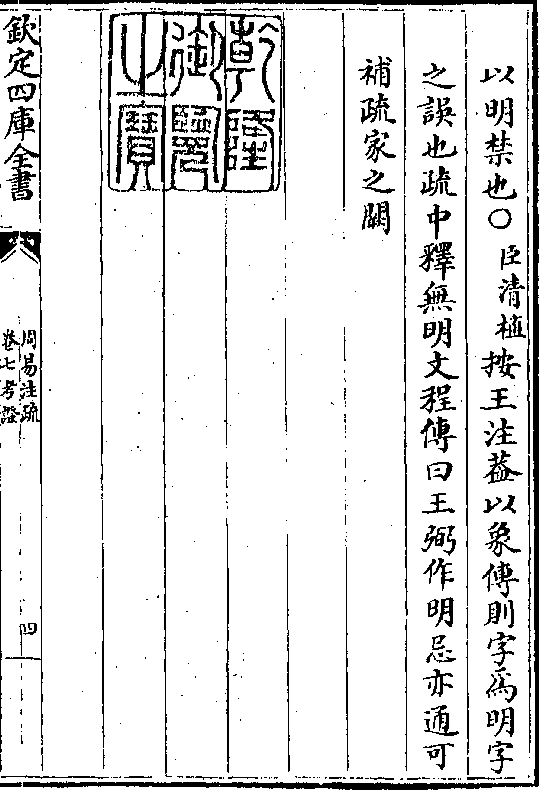 以明禁也〇臣清植按王注葢以象傳則字爲明字
之誤也疏中釋無明文程傳曰王弼作明忌亦通可
補疏家之闕
乾隆
御覽
之寶
欽定四庫全書
周易注疏
卷七考證
四